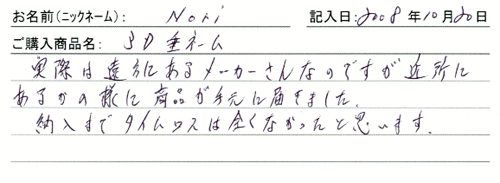 お名前(ニックネーム): Nori 記入日:2008年10月20日
ご購入商品名: 3D垂ネーム
実際は遠方にあるメーカーさんなのですが近所に
あるかの様に商品が手元に届きました.
納入までタイムロスは全くなかったと思います.